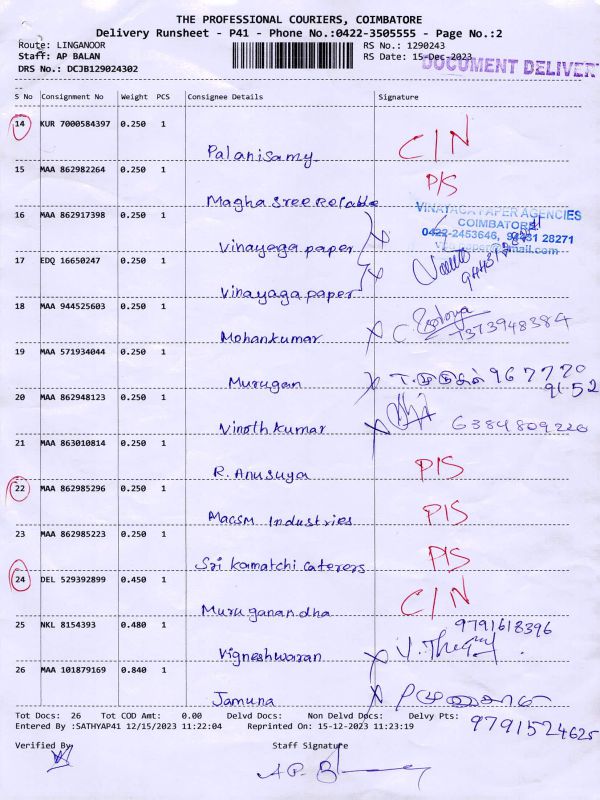 THE PROFESSIONAL COURIERS, COIMBATORE
Delivery Runsheet - P41 - Phone No.:0422-3505555 - Page No.:2
Route: LINGANOOR RS No.: 1290243
Staff: AP BALAN RS Date: 15-Dec-2023
DRS No.: DCJB129024302
DOCUMENT DELIVER
S No Consignment No Weight PCS Consignee Details Signature
14 KUR 7000584397 0.250 1
Palanisamy C/N
15 MAA 862982264 0.250 1
Magha Sree Relable P/S
16 MAA 862917398 0.250 1
VINAYAGA PAPER AGENCIES
COIMBATORE
0422-2453646, 94431 28271
Vinayaga paper
17 EDQ 16650247 0.250 1
Vinayaga paper
18 MAA 944525603 0.250 1
Mohankumar 7373948384
19 MAA 571934044 0.250 1
Murugan 967770
9152
20 MAA 862948123 0.250 1
Vinoth kumar 6384809220
21 MAA 863010814 0.250 1
R. Anusuya P/S
22 MAA 862985296 0.250 1
Macsm Industries P/S
23 MAA 862985223 0.250 1
Sri kamatchi caterers P/S
24 DEL 529392899 0.450 1
Muruganandha C/N
25 NKL 8154393 0.480 1 9791618396
Vigneshwaran
26 MAA 101879169 0.840 1
Jamuna
Tot Docs: 26 Tot COD Amt: 0.00 Delvd Docs: Non Delvd Docs: Delvy Pts:
9791524625
Entered By :SATHYAP41 12/15/2023 11:22:04 Reprinted On: 15-12-2023 11:23:19
Verified By Staff Signature